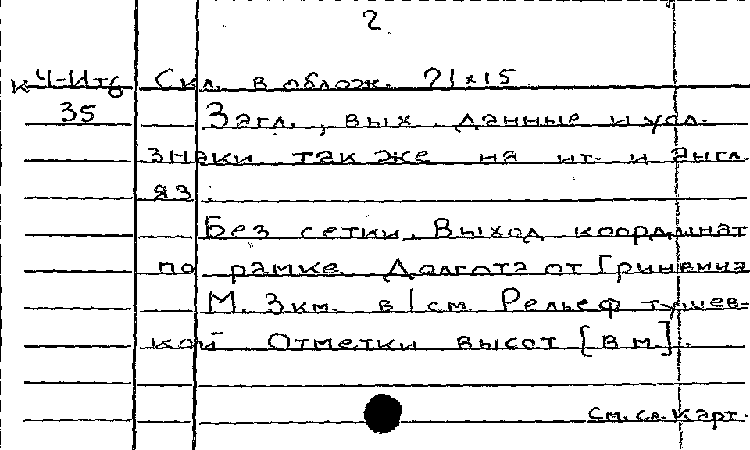 2
К Ч-Ит6 Скл. в облож. 21x15
35 Загл., вых. данные и усл.
знаки также на ит. и англ.
яз.
Без сетки. Выход координат
по рамке. Долгота от Гринвича
М. 3км. в 1 см. Рельеф тушев-
кой Отметки высот [в м].
См. сл. карт.